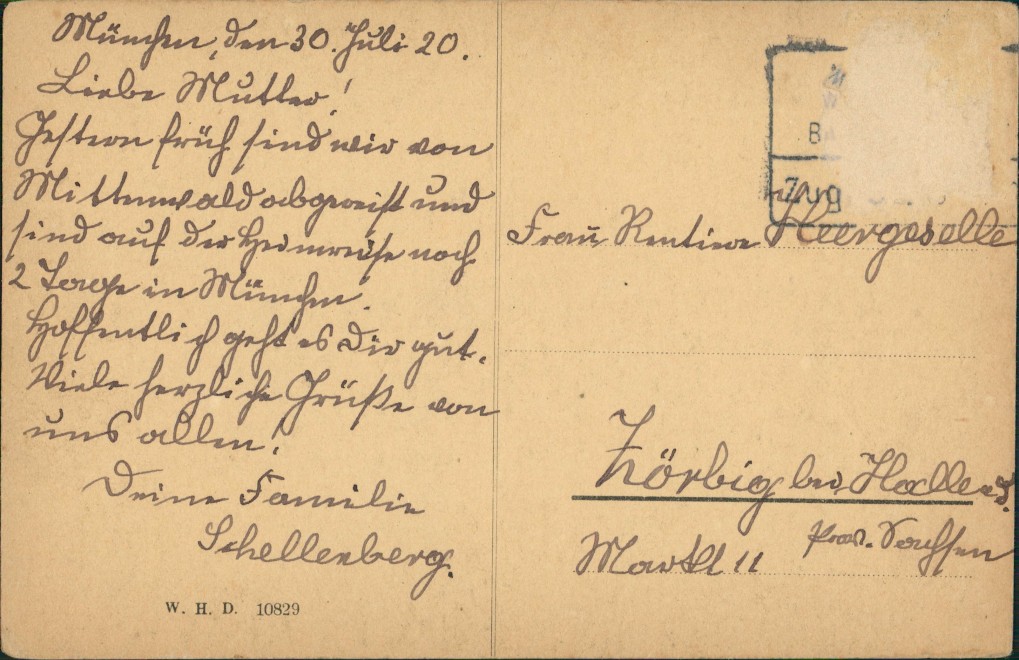 München, den 30. Juli 20.
Liebe Mutter!
Gestern früh sind wir von
Mittenwald abgereist und
sind auf der Heimreise noch
2 Tage in München.
Hoffentlich geht es Dir gut.
Viele herzliche Grüße von
uns allen!
Deine Familie
Schellenberg.
W. H. D. 10829
B
Zug
Frau Rentiere Heergeselle
Zörbig bei Halle a/S.
Prov. Sachsen
Markt 11